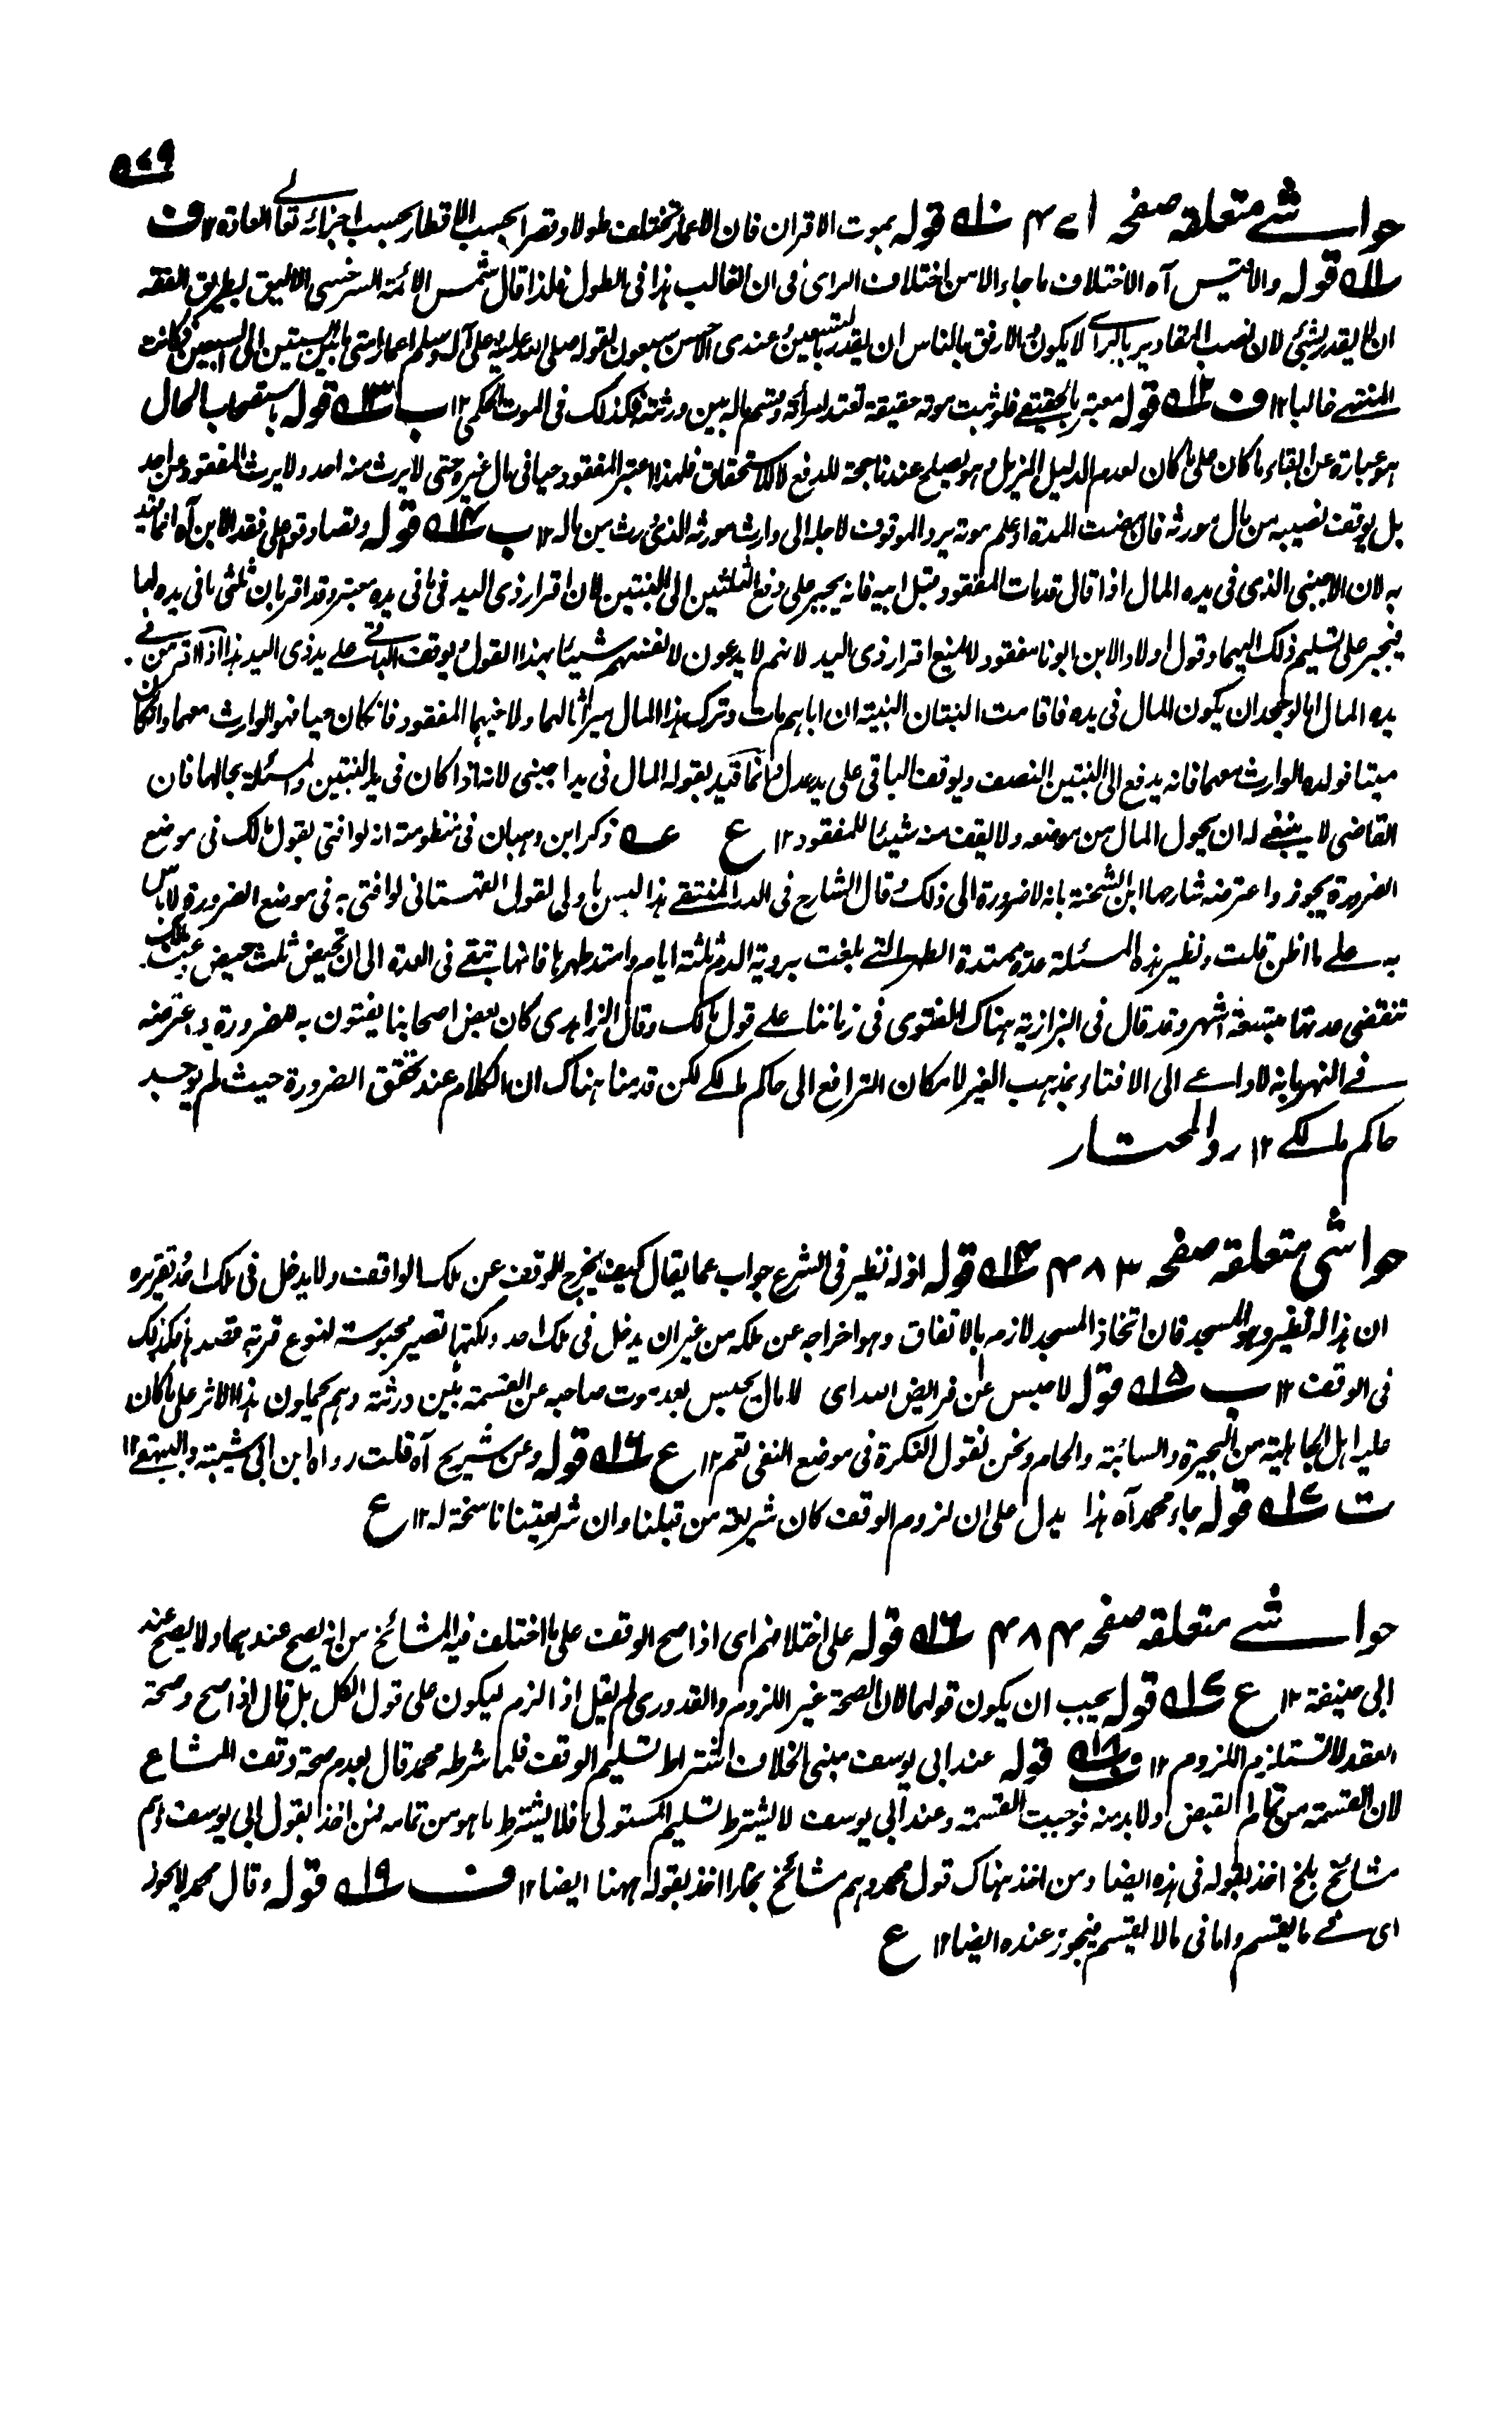 ٥٧٩
حواشے متعلقہ صفحہ ٤٧١ ؎١٠ قوله بموت الاقران فان الاعمار تختلف طولا وقصرا بحسب الاقطار بحسب اجرائہ تعالے العادة ١٢ ف
؎١١ قوله والاقيس آه الاختلاف ما جاء الا من اختلاف الرای فی ان الغالب هذا فی الطول فلذا قال شمس الائمة السرخسی الاليق بطريق الفقه
ان لا يقدر بشئ لان نصب المقادير بالرای لا يكون والارفق بالناس ان يقدر بتسعين وعندی الاحسن سبعون لقوله صلی الله عليه وعلی آله وسلم اعمار امتی ما بين الستين الی السبعين فكانت
المنتهی غالبا ١٢ ف ؎١٢ قوله معتبر بالحقيقے فلو ثبت موته حقيقة تعتد امرأته وقسم ماله بين ورثته فكذلك فی الموت الحكمی ١٢ ب ؎١٣ قوله باستصحاب الحال
هو عبارة عن ابقاء ما كان علی ما كان لعدم الدليل المزيل وهو يصلح عندنا حجة للدفع لا للاستحقاق فلهذا لا اعتبر المفقود حيا فی مال غيره حتی لا يرث من احد ولا يرث المفقود عن احد
بل يوقف نصيبه من مال مورثه فان مضت المدة او علم موته يرد الموقوف لاجله الی وارث مورثه الذی ورث من ماله ١٢ ب ؎١٤ قوله وتصادقوا علی فقد الابن آه انما قيد
به لان الاجنبی الذی فی يده المال اذا قال قد مات المفقود قبل ابيه فانه يجبر علی دفع الثلثين الی البنتين لان اقرار ذی اليد فی ما فی يده معتبر وقد اقر بان ثلثی ما فی يده لهما
فيجبر علی تسليم ذلك اليهما وقول اولاد الابن ابونا مفقود لا يمنع اقرار ذی اليد لانهم لا يدعون لانفسهم شيئا بهذا القول ويوقف الباقی علے يد ذی اليد هذا اذا اقر من فے
يده المال اما لو جحد ان يكون المال فی يده فاقامت البنتان البينة ان اباهم مات وترك هذا المال ميراثا لهما ولاخيهما المفقود فان كان حيا فهو الوارث معهما وان كان
ميتا فولده الوارث معهما فانه يدفع الی البنتين النصف ويوقف الباقی علی يد عدل وانما قيد بقوله المال فی يد اجنبی لانه اذا كان فی يد البنتين والمسئلة بحالها فان
القاضی لا ينبغے له ان يحول المال من موضعه ولا يقف منه شيئا للمفقود ١٢ ع عه ذكر ابن وهبان فی منظومته انه لو افتی بقول مالك فی موضع
الضرورة يجوز واعترضه شارحها ابن الشحنة بانه لا ضرورة الی ذلك وقال الشارح فی الدر المنتقے هذا ليس باولی لقول القهستانی لو افتی به فی موضع الضرورة لا باس
به علے ما اظن قلت ونظير هذه المسئلة عدة ممتدة الطهر التے بلغت بروية الدم ثلثة ايام وامتد طهرها فانها تبقے فی العدة الی ان تحيض ثلث حيض وعند مالك
تنقضی عدتها بتسعة اشهر وقد قال فی البزازية هناك الفتوی فی زماننا علے قول مالك وقال الزاهدی كان بعض اصحابنا يفتون به للضرورة واعترضه
فے النهر بانه لا داعے الی الافتاء بمذهب الغير لامكان الترافع الی حاكم مالكے لكن قدمنا هناك ان الكلام عند تحقق الضرورة حيث لم يوجد
حاكم مالكے ١٢ رد المحتار
حواشی متعلقہ صفحہ ٤٨٣ ؎١٤ قوله اذ له نظير فی الشرع جواب عما يقال كيف يخرج الوقف عن ملك الواقف ولا يدخل فی ملك احد تقريره
ان هذا له نظير وهو المسجد فان اتخاذ المسجد لازم بالاتفاق وهو اخراجه عن ملكه من غير ان يدخل فی ملك احد ولكنها تصير محبوسة لنوع قربة قصدها فكذلك
فی الوقف ١٢ ب ؎١٥ قوله لا حبس عن فرايض الله ای لا مال يحبس بعد موت صاحبه عن القسمة بين ورثته وهم يحملون هذا الاثر علی ما كان
عليه اهل الجاهلية من البحيرة والسائبة والحام ونحن نقول النكرة فی موضع النفی تعم ١٢ ع ؎١٦ قوله وعن شريح آه قلت رواه ابن ابی شيبة والبيهقے ١٢
ت ؎١٧ قوله جاء محمد آه هذا يدل علی ان لزوم الوقف كان شريعة من قبلنا وان شريعتنا ناسخة له ١٢ ع
حواشے متعلقہ صفحہ ٤٨٤ ؎١٦ قوله علی اختلافهم ای اذا صح الوقف علی ما اختلف فيه المشائخ من انه يصح عندهما ولا يصح عند
ابی حنيفة ١٢ ع ؎١٧ قوله يجب ان يكون قولهما لان الصحة غير اللزوم والقدوری لم يقل اذا لزم ليكون علی قول الكل بل قال اذا صح وصحة
العقد لا تستلزم اللزوم ١٢ ؎١٨ قوله عند ابی يوسف مبنی الخلاف اشتراط تسليم الوقف فلما شرطه محمد قال بعدم صحة وقف المشاع
لان القسمة من تمام القبض ولا بد منه فوجبت القسمة وعند ابی يوسف لا يشترط تسليم المتولی فلا يشترط ما هو من تمامه فمن اخذ بقول ابی يوسف وهم
مشائخ بلخ اخذ بقوله فی هذه ايضا ومن اخذ هناك قول محمد وهم مشائخ بخارا اخذ بقوله ههنا ايضا ١٢ ف ؎١٩ قوله وقال محمد لا يجوز
ای فے ما يقسم واما فی ما لا يقسم فيجوز عنده ايضا ١٢ ع